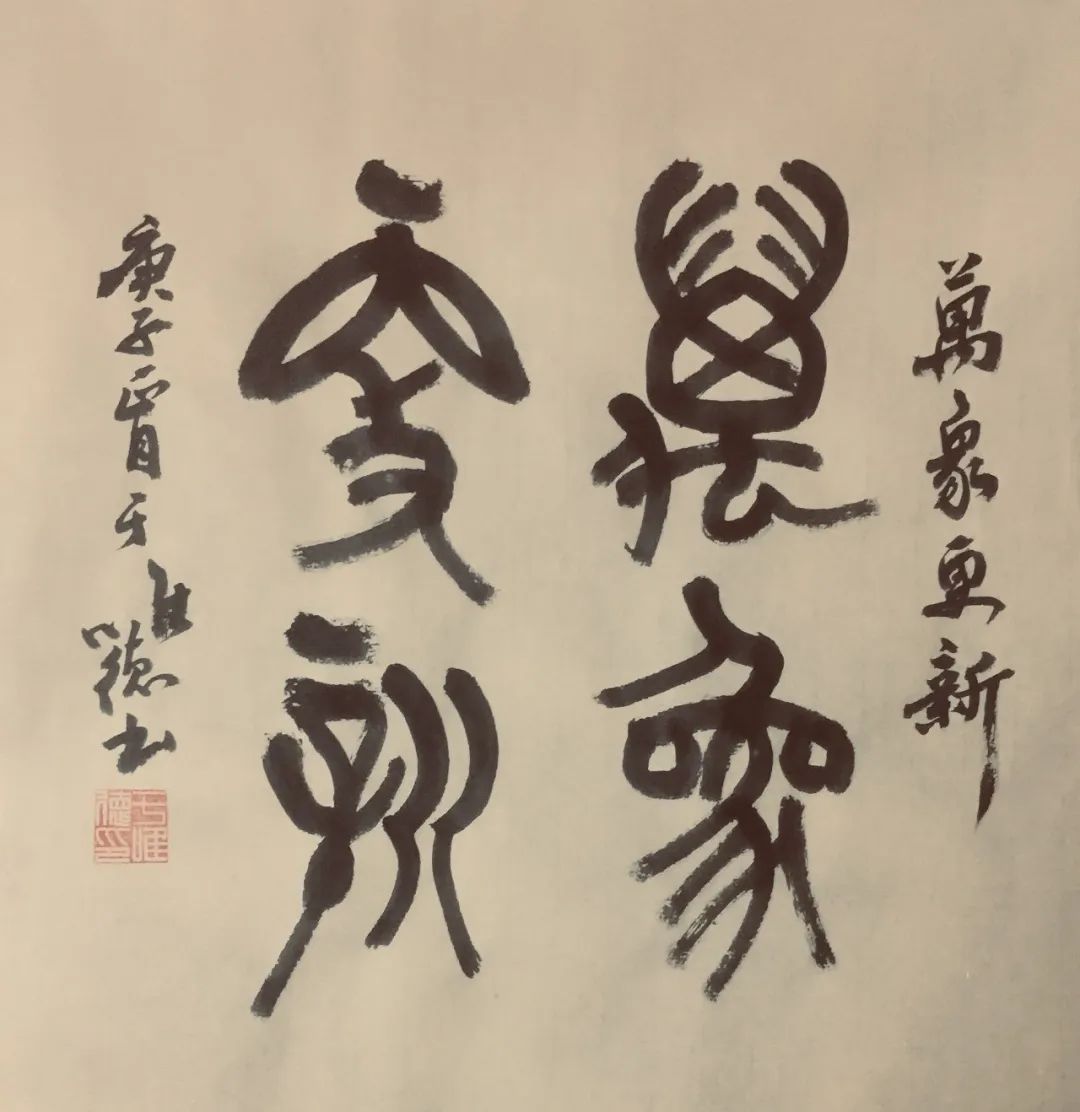 萬象更新
萬象
更新
庚子正月于唯德书